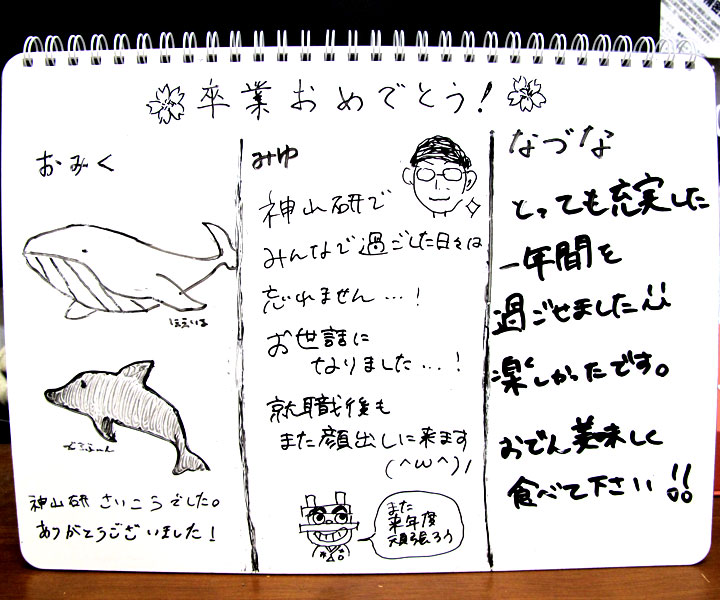 卒業おめでとう!
おみく
ほえいる
どるふぃーん
神山研さいこうでした。
ありがとうございました!
みゆ
神山研で
みんなで過ごした日々は
忘れません…!
お世話に
なりました…!
就職後も
また顔出しに来ます
(^ω^)/
また
来年度
頑張ろう
なづな
とっても充実した
一年間を
過ごせました!!
楽しかったです。
おでん美味しく
食べて下さい!!